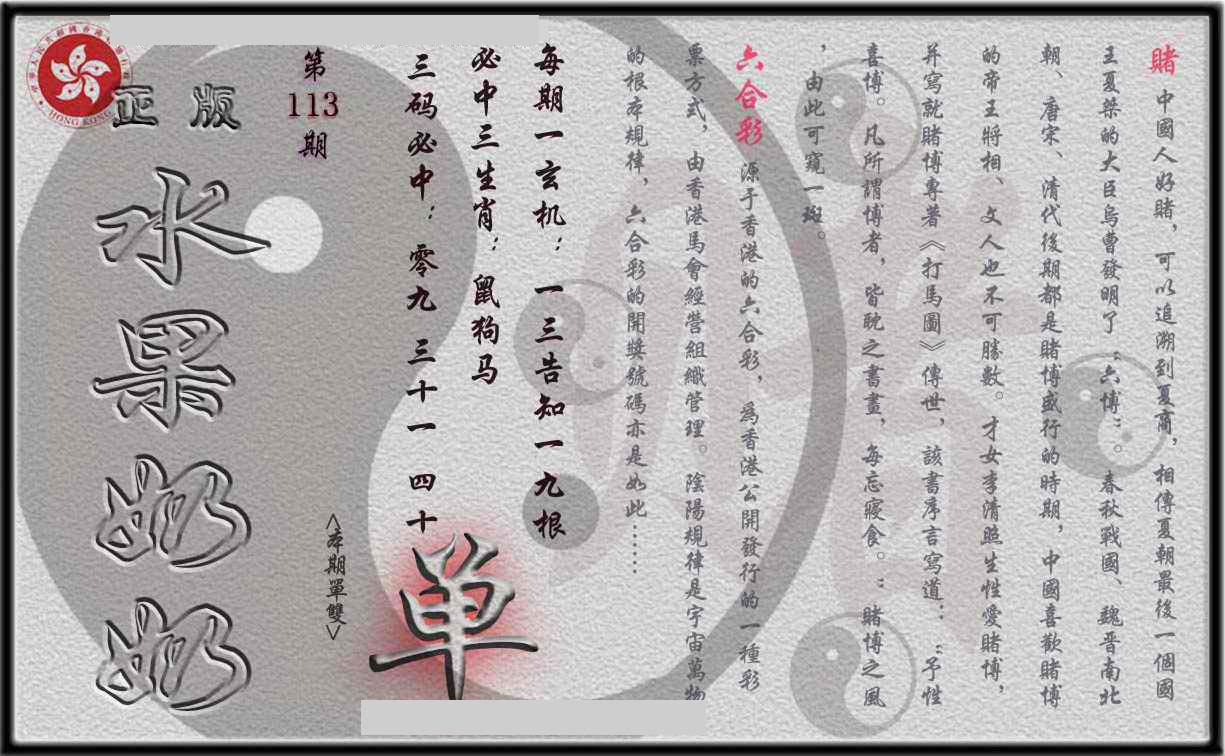 賭 中國人好賭，可以追溯到夏商，相傳夏朝最後一個國
王夏桀的大臣烏曹發明了“六博”。春秋戰國、魏晉南北
朝、唐宋、清代後期都是賭博盛行的時期，中國喜歡賭博
的帝王將相、文人也不可勝數。才女李清照生性愛賭博，
并寫就賭博專著《打馬圖》傳世，該書序言寫道：“予性
喜博。凡所謂博者，皆耽之晝，每忘寢食。”賭博之風
，由此可窺一斑。
六合彩 源于香港的六合彩，爲香港公開發行的一種彩
票方式，由香港馬會經營組織管理。陰陽規律是宇宙萬物
的根本規律，六合彩的開獎號碼亦是如此……
每期一玄机：一三告知一九根
必中三生肖：鼠狗马
三码必中：零九 三十一 四十
单
<本期單雙>
第
113
期
正版
水果奶奶
HONG KONG